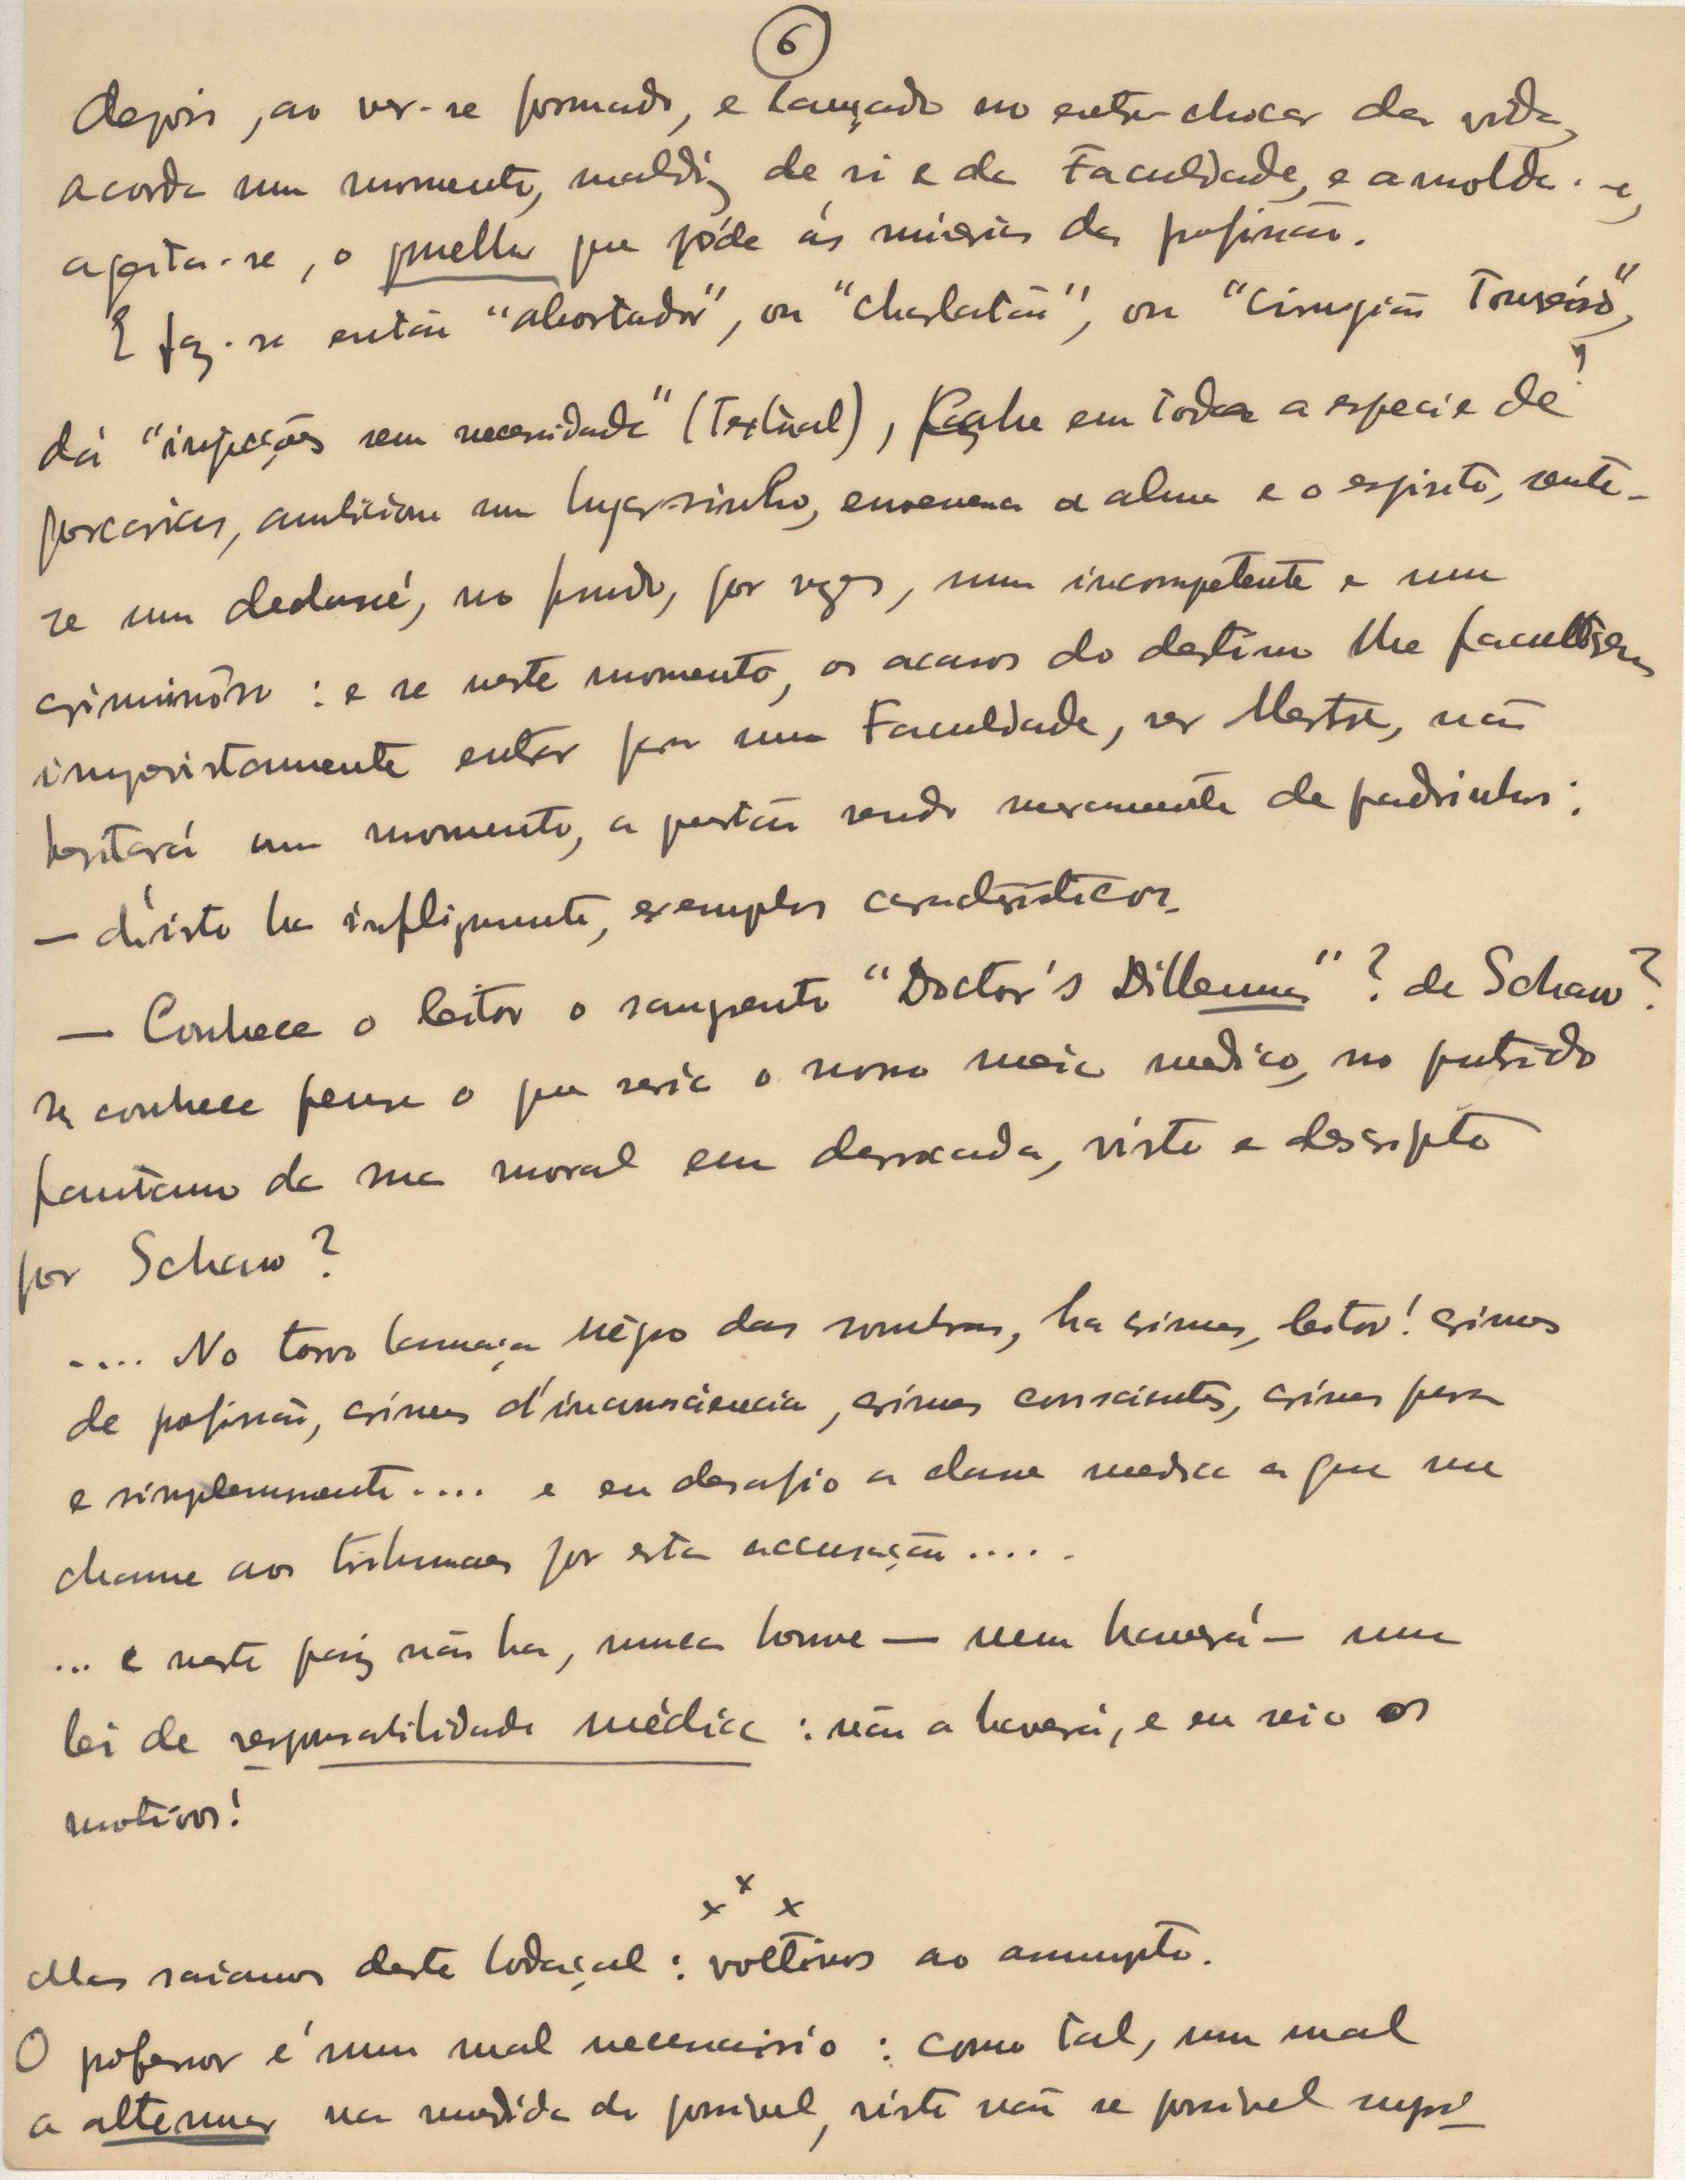 6
depois, ao ver-se formado, e lançado no entre-chocar da vida,
acorda um momento, maldiz de si e da Faculdade, e amolda-se,
ageita-se, o melhor que póde ás miserias da profissão.
E faz-se então "abortador", ou "charlatão", ou "cirurgião
dá "injecções sem necessidade" (Textual), em toda a especie de
porcarias, ambiciona um lugar-sinho, envenena a alma e o espirito, sente-
se um declassé, no fundo, por vezes, um incompetente e um
criminôso : e se neste momento, os acasos do destino lhe facultarem
imprevistamente entrar para uma Faculdade, ser Mestre, não
hesitará um momento, a questão sendo meramente de padrinhos :
— d'isto ha infelizmente, exemplos caracteristicos.
— Conhece o leitor o sangrento "Doctor's Dillemma" ? de Schaw ?
Se conhece pense o que seria o nosso meio medico, no putrido
pantano da sua moral em derrocada, visto e descripto
por Schaw ?
.... No torvo lamaçal négro das sombras, ha crimes, leitor ! crimes
de profissão, crimes d'inconsciencia, crimes conscientes, crimes pura
e simplesmente .... e eu desafio a classe medica a que me
chame aos tribunaes por esta accusação .....
... e neste paiz não ha, nunca houve — nem haverá — uma
lei de responsabilidade médica : não a haverá, e eu sei os
motivos !
x x x
Mas saiamos deste lodaçal : voltemos ao assumpto.
O professor é um mal necessario : como tal, um mal
a attenuar na medida do possivel, visto não se possivel supri-